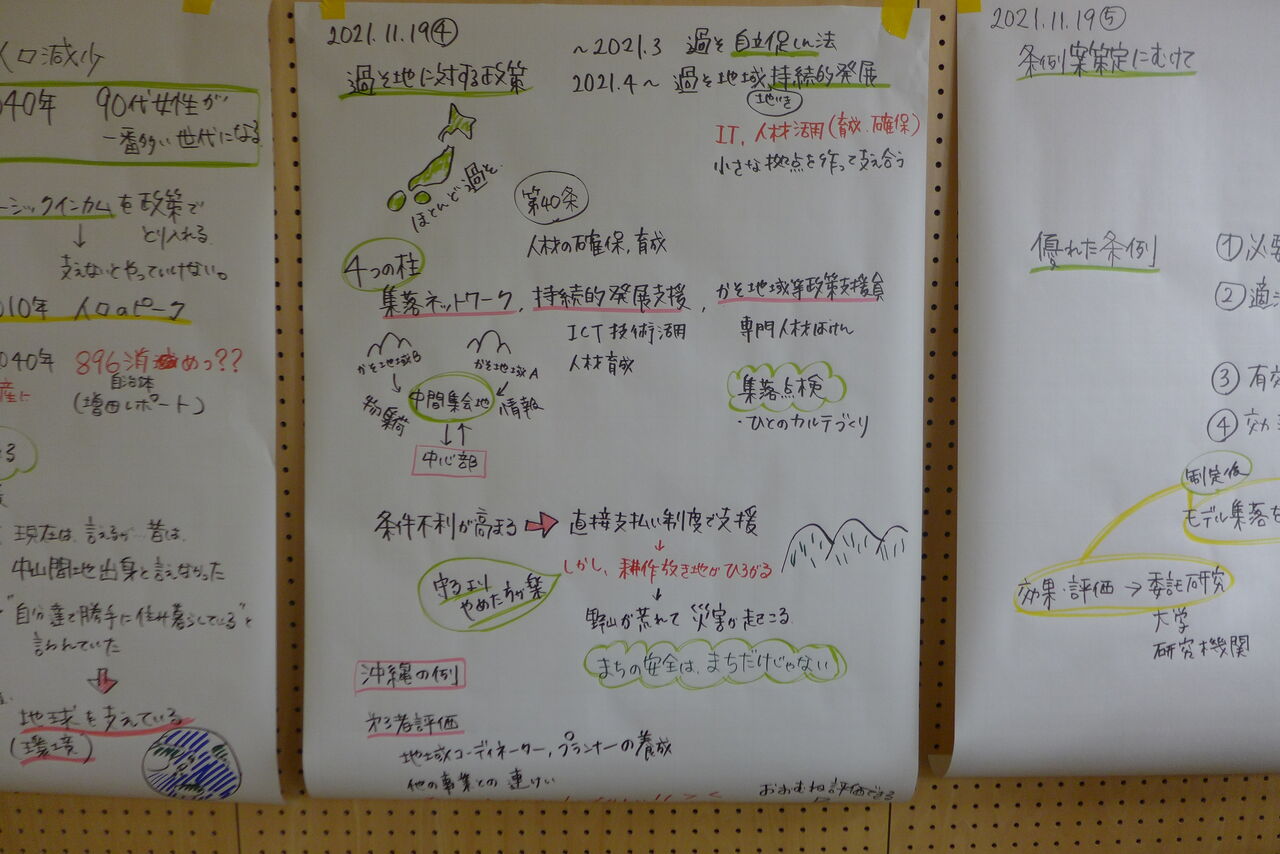 人口減少
040年 90代女性が
一番多い世代になる
ーシックインカムを政策で
とり入れる
↓
支えないとやっていけない。
010年 人口のピーク
040年 896消めつ??
自治体
(増田レポート)
産に
る
現在は、言えるが…昔は、
中山間地出身と言えなかった
"自分達で勝手に住み暮らしている"と
言われていた
地球を支えている
(環境)
2021.11.19④
過そ地に対する政策
~2021.3 過そ自立促しん法
2021.4~ 過そ地域持続的発展
地いき
IT、人材活用(育成・確保)
小さな拠点を作って支え合う
ほとんど過そ
第40条
人材の確保,育成
4つの柱
集落ネットワーク, 持続的発展支援, かそ地域等政策支援員
ICT技術活用
人材育成
専門人材はけん
かそ地域B
かそ地域A
中間集会地
集荷
情報
↓↑
中心部
集落点検
・ひとのカルテづくり
条件不利が高まる ⇒ 直接支払い制度で支援
↓
しかし、耕作放き地がひろがる
↓
守るより
やめた方が楽
野山が荒れて 災害が起こる
まちの安全は、まちだけじゃない
沖縄の例
才3者評価
地域コーディネーター,プランナーの養成
他の事業との連けい
おおむね評価できる
2021.11.19⑤
条例案策定にむけて
優れた条例
①必要
②適
③有効
④効
制定後
モデル集落を
効果・評価 → 委託研究
大学
研究機関